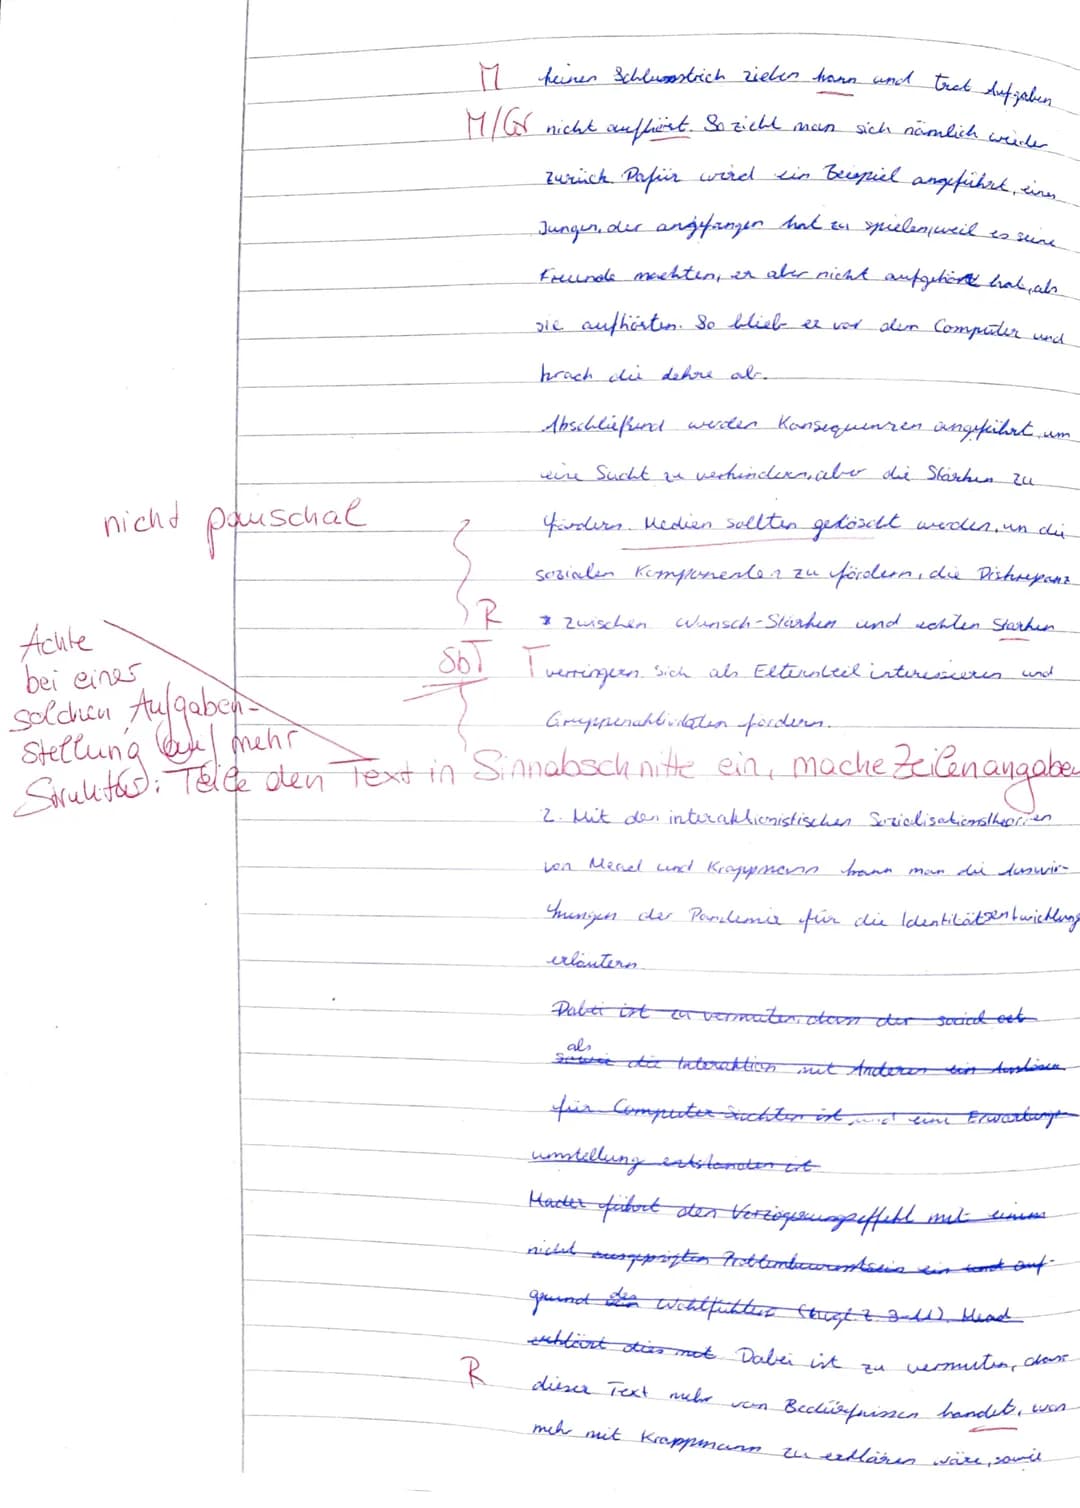 M keinen Schlussstrich ziehen kann und trotz Aufgaben
M/Gr nicht aufhört. So zieht man sich nämlich wieder
zurück. Dafür wird ein Beispiel angeführt, eines
Jungen, der angefangen hat zu spielen, weil es seine
Freunde machten, er aber nicht aufgehört hat, als
sie aufhörten. So blieb er vor dem Computer und
brach die Lehre ab.
Abschließend werden Konsequenzen angeführt, um
eine Sucht zu verhindern, aber die Stärken zu
nicht pauschal
fördern. Medien sollten gelöscht werden, um die
sozialen Komponenten zu fördern, die Diskrepanz
R zwischen Wunsch-Stärken und echten Starken
SbT T verringern sich als Elternteil interessieren und
Gruppenaktivitäten fördern.
Achte
bei einer
solchen Aufgaben-
stellung auf mehr
Struktur: Teile den Text in Sinnabschnitte ein, mache Zeilenangaben
2. Mit den interaktionistischen Sozialisationstheorien
von Mead und Krappmann kann man die Auswir-
kungen der Pandemie für die Identitätsentwicklung
erläutern.
Dabei ist zu vermuten, dass der social act
als
sowie die Interaktion mit Anderen ein Auslöser
für Computer Süchten ist, und eine Erwartungs
umstellung entstanden ist
führt den Verzögerungseffekt mit einem
nicht ausgeprägten Problembewusstsein ein und auf-
grund des Wohlfühlens (vgl. Z. 3-11). Mead
erklärt dies mit Dabei ist zu vermuten, dass
R dieser Text mehr von Bedürfnissen handelt, was
mehr mit Krappmann zu erklären wäre, sowie